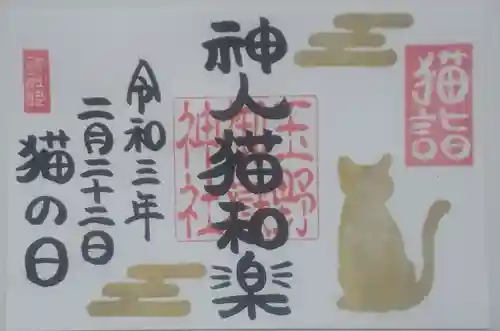 猫詣
神人猫和楽
玉野御嶽神社
令和三年
二月二十二日
猫の日